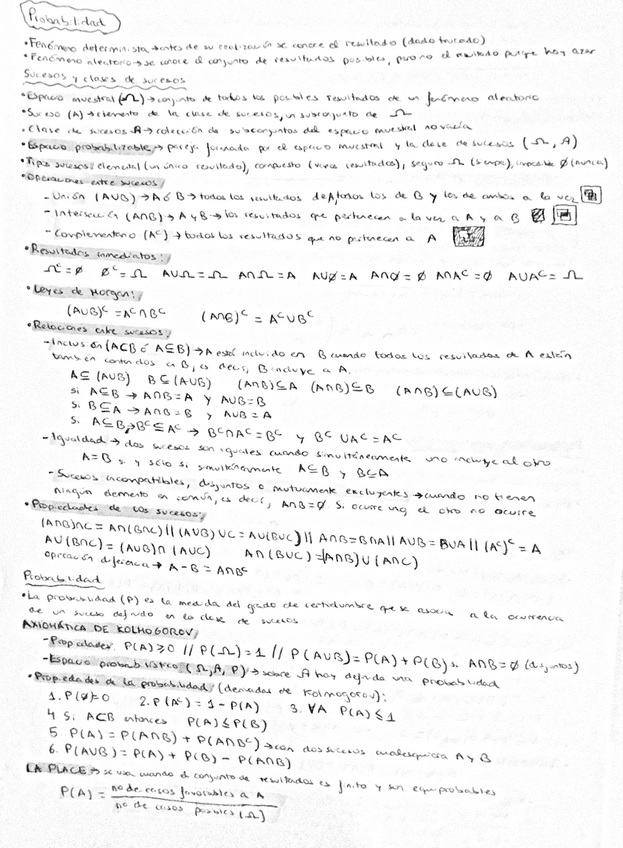 Probabilidad
• Fenómeno determinista → antes de su realización se conoce el resultado (dado trucado)
• Fenómeno aleatorio → se conoce el conjunto de resultados posibles, pero no el resultado porque hay azar
Sucesos y clases de sucesos
• Espacio muestral (Ω) → conjunto de todos los posibles resultados de un fenómeno aleatorio
• Suceso (A) → elemento de la clase de sucesos, un subconjunto de Ω
• Clase de sucesos A → colección de subconjuntos del espacio muestral no vacía
• Espacio probabilizable → pareja formada por el espacio muestral y la clase de sucesos (Ω, A)
• Tipos sucesos: elemental (un único resultado), compuesto (varios resultados), seguro Ω (siempre), imposible ∅ (nunca)
• Operaciones entre sucesos/
- Unión (A∪B) → A ó B → todos los resultados de A, todos los de B y los de ambos a la vez
- Intersección (A∩B) → A y B → los resultados que pertenecen a la vez a A y a B
- Complementario (Aᶜ) → todos los resultados que no pertenecen a A
• Resultados inmediatos:
Ωᶜ = ∅ ∅ᶜ = Ω A∪Ω = Ω A∩Ω = A A∪∅ = A A∩∅ = ∅ A∩Aᶜ = ∅ A∪Aᶜ = Ω
• Leyes de Morgan:
(A∪B)ᶜ = Aᶜ∩Bᶜ (A∩B)ᶜ = Aᶜ∪Bᶜ
• Relaciones entre sucesos:
- Inclusión (A⊂B ó A⊆B) → A está incluido en B cuando todos los resultados de A están
también contenidos a B, es decir, B incluye a A.
A⊆(A∪B) B⊆(A∪B) (A∩B)⊆A (A∩B)⊆B (A∩B)⊆(A∪B)
Si A⊆B → A∩B = A y A∪B = B
Si B⊆A → A∩B = B y A∪B = A
Si A⊆B → Bᶜ⊆Aᶜ → Bᶜ∩Aᶜ = Bᶜ y Bᶜ∪Aᶜ = Aᶜ
- Igualdad → dos sucesos son iguales cuando simultáneamente uno incluye al otro
A=B si y sólo si simultáneamente A⊆B y B⊆A
- Sucesos incompatibles, disjuntos o mutuamente excluyentes → cuando no tienen
ningún elemento en común, es decir, A∩B = ∅. Si ocurre uno, el otro no ocurre
• Propiedades de los sucesos:
(A∩B)∩C = A∩(B∩C) || (A∪B)∪C = A∪(B∪C) || A∩B = B∩A || A∪B = B∪A || (Aᶜ)ᶜ = A
A∪(B∩C) = (A∪B)∩(A∪C) A∩(B∪C) = (A∩B)∪(A∩C)
operación diferencia → A - B = A∩Bᶜ
Probabilidad
• La probabilidad (P) es la medida del grado de certidumbre que se asocia a la ocurrencia
de un suceso definido en la clase de sucesos
AXIOMÁTICA DE KOLMOGOROV
- Propiedades: P(A) ≥ 0 // P(Ω) = 1 // P(A∪B) = P(A) + P(B) si A∩B = ∅ (disjuntos)
- Espacio probabilístico (Ω, A, P) → sobre A hay definida una probabilidad
• Propiedades de la probabilidad (derivadas de Kolmogorov):
1. P(∅) = 0 2. P(Aᶜ) = 1 - P(A) 3. ∀A P(A) ≤ 1
4 Si A⊂B entonces P(A) ≤ P(B)
5. P(A) = P(A∩B) + P(A∩Bᶜ) → con dos sucesos cualesquiera A y B
6. P(A∪B) = P(A) + P(B) - P(A∩B)
LA PLACE → se usa cuando el conjunto de resultados es finito y son equiprobables
P(A) = no de casos favorables a A
no de casos posibles (Ω)